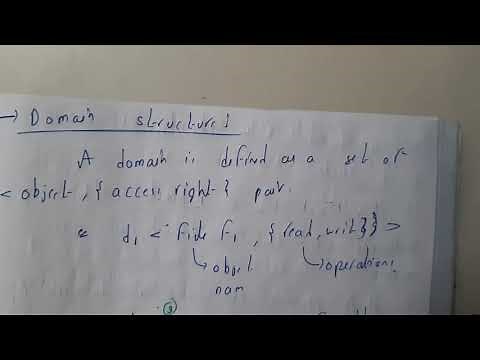 → Domain structures
A domain is defined as a set of
< object, { access right } pair.
d1 < File F1, {read, writ}} >
object operations
nam
③